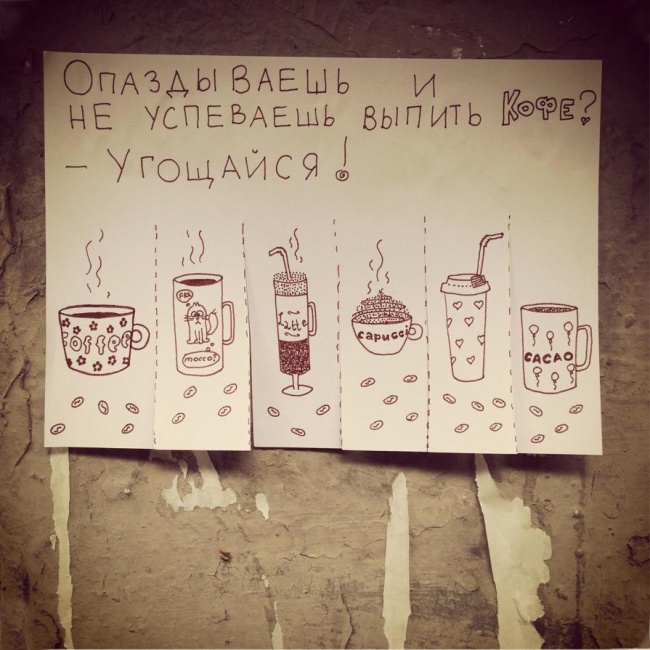 Опаздываешь и
не успеваешь выпить кофе?
– Угощайся!
coffee
мосго?
Latte
capucci
CACAO